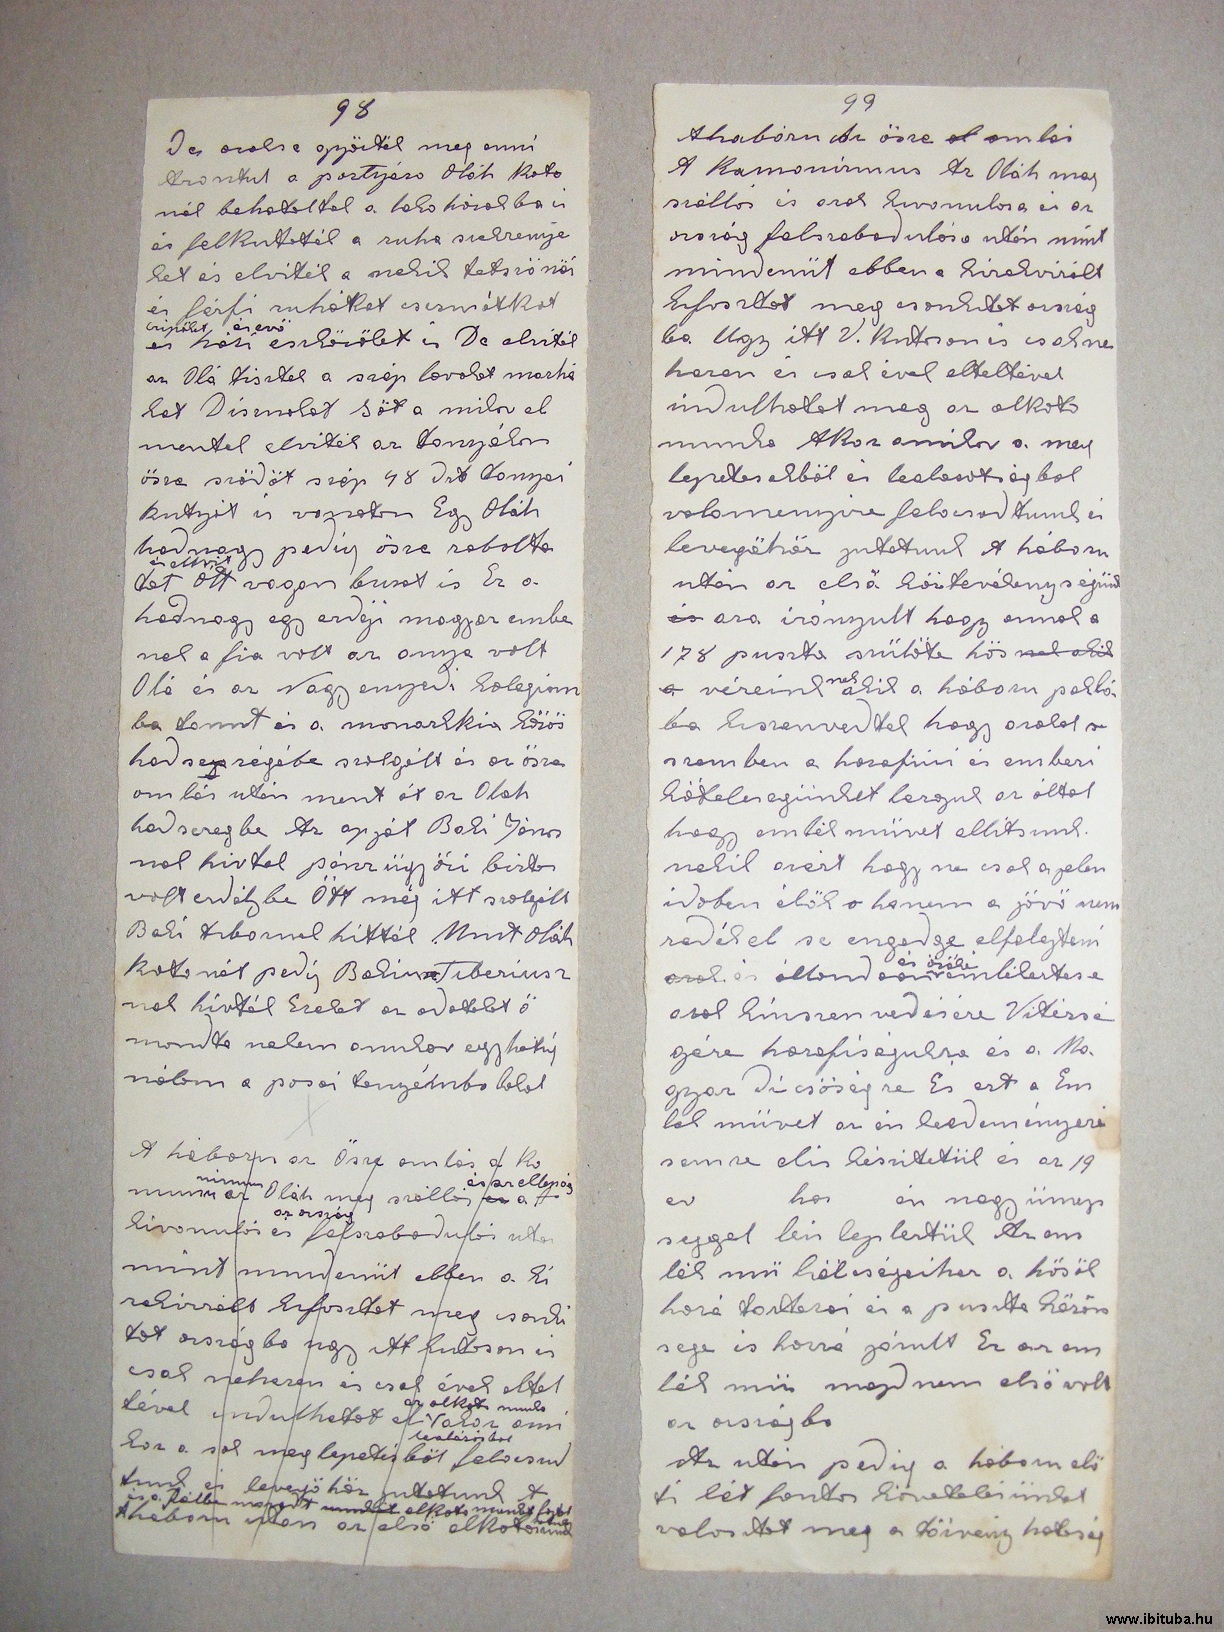 98
De arohe gyöitél meg anni
Azontul a portyázo Oláh kato
nál behatoltal a lako házakba is
és felkutatál a ruha szekrenye
ket és elvitél a nekik tetsző női
és férfi ruhákat csizmákkot
csipőket és evő
és házi eszközöket is De elvitél
az Olá tisztel a szép lovakat marhá
kat Disznokat Söt a mikor el
mentel elvitél az tanyákon
ösze szödöt szép 48 drb tanyai
kutyát is vonaton Egy Oláh
hadnagy pedig ösze rabolta
és elvitt
tot Ött vagon buzat is Ez a
hadnagy egy erdéji magyar embe
nek a fia volt az anya volt
Olá és az Nagy enyedi kolegium
ba tanut és a monarkia közös
hadseregébe szolgált és az ösze
omlás után ment át az Olah
hadseregbe Az apját Baki János
nak hivtak pénzügyőri biztos
volt erdéjbe Ött még itt szolgált
Baki tibornak hitták Mint Oláh
katonát pedig Bakius Tiberiusz
nak hivták Ezeket az adatokat ő
mondta nekem amikor egy hétig
nálam a posai tanyámba lakot
A háboru az Ösze omlás a Ko
nizmus és az ellepés
munu az Oláh meg szállás és a
az ország
kivonulás és felszabadulás utan
mint mindenüt ebben a ki
rakirált kifosztot meg csonki
tot országba ugy itt kutason is
csak nehezen és csak évek eltel
az alkoto munka
tével indulhatot el Vakor ami
lealázásbol
kor a sok meglepetésböl felocsud
tunk és levegőhőz jutatunk A
A haboru utan az első alkotasunk
99
A haboru Az ösze omlás
A Kamonizmus Az Oláh meg
szállás és azok kivonulasa és az
ország felszabadulása után mint
mindenüt ebben a kirakirált
kifosztot meg csonkitot ország
ba Ugy itt V. kutason is csak ne
hezen és csak évek elteltével
indulhatot meg az alkoto
munka Akor amikor a meg
lepetesekböl és lealazotságbol
valamenyire felocsudtunk és
levegőhőz jutatunk A háboru
után az első köztevékenységünk
és ara irányult hogy annak a
178 puszta szülöte hös nek akik
a véreink nek akik a háboru poklá
ba kiszenvedtek hogy azokal sz
szemben a hazafiui és emberi
kötelesegünket lerojuk az által
hogy emlék müvet allitsunk
nekik azért hogy ne csak a jelen
idoben élők a hanem a jövö nem
zedékek se engedje elfelejteni
és örökö
azok és állandoan emlékertese
azok kinszenvedésére Vitézsé
gére hazafiságukra és a Ma
gyar dicsőségre És ezt a Em
lék müvet az én kezdeményezé
semre elis készitetük és az 19
ev hos án nagy ünep
seggel lele lepleztük Az em
lék mü költségeihez a hősök
hozá tartozoi és a puszta közön
sege is hozzá járult Ez az em
lék mü majdnem első volt
az országba
Azután pedig a háboru elő
ti lét fontos követelésünket
valositot meg a törvény hatoság
www.ibituba.hu